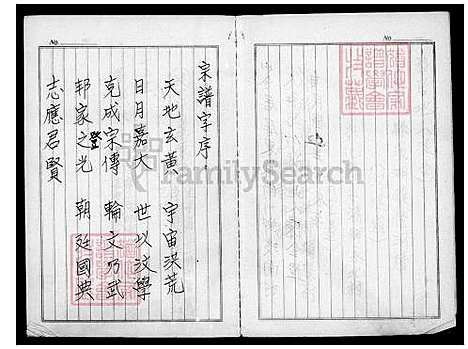 No
No
宗譜字序
天地玄黃 宇宙洪荒
日月嘉大 世以汶學
克成宗傳 輪文乃武
登
邦家之光 朝廷國典
志應君賢
FamilySearch